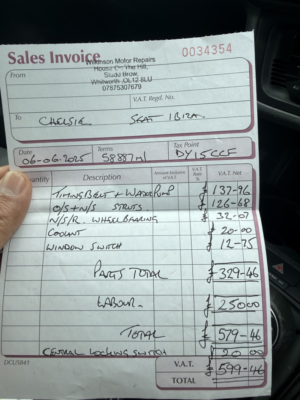 Sales Invoice
0034354
From
Wilkinson Motor Repairs
The Hill,
Brow,
Whitworth OL12 8LU
07875307679
V.A.T. Regd. No.
To
CHELSIE SEAT IBIZA.
Date Terms Tax Point
06-06-2025 58887ml DY15CCF
Quantity Description V.A.T. Net
TIMING BELT + WATER PUMP £ 137-96
O/S + N/S STRUTS £ 126-68
N/S/R. WHEELBEARING £ 32-07
COOLANT £ 20-00
WINDOW SWITCH £ 12-75
PARTS TOTAL £ 329-46
LABOUR. £ 250 00
TOTAL £ 579-46
CENTRAL LOCKING SWITCH £ 20 00
V.A.T. £ 599-46
TOTAL
DCUSB43